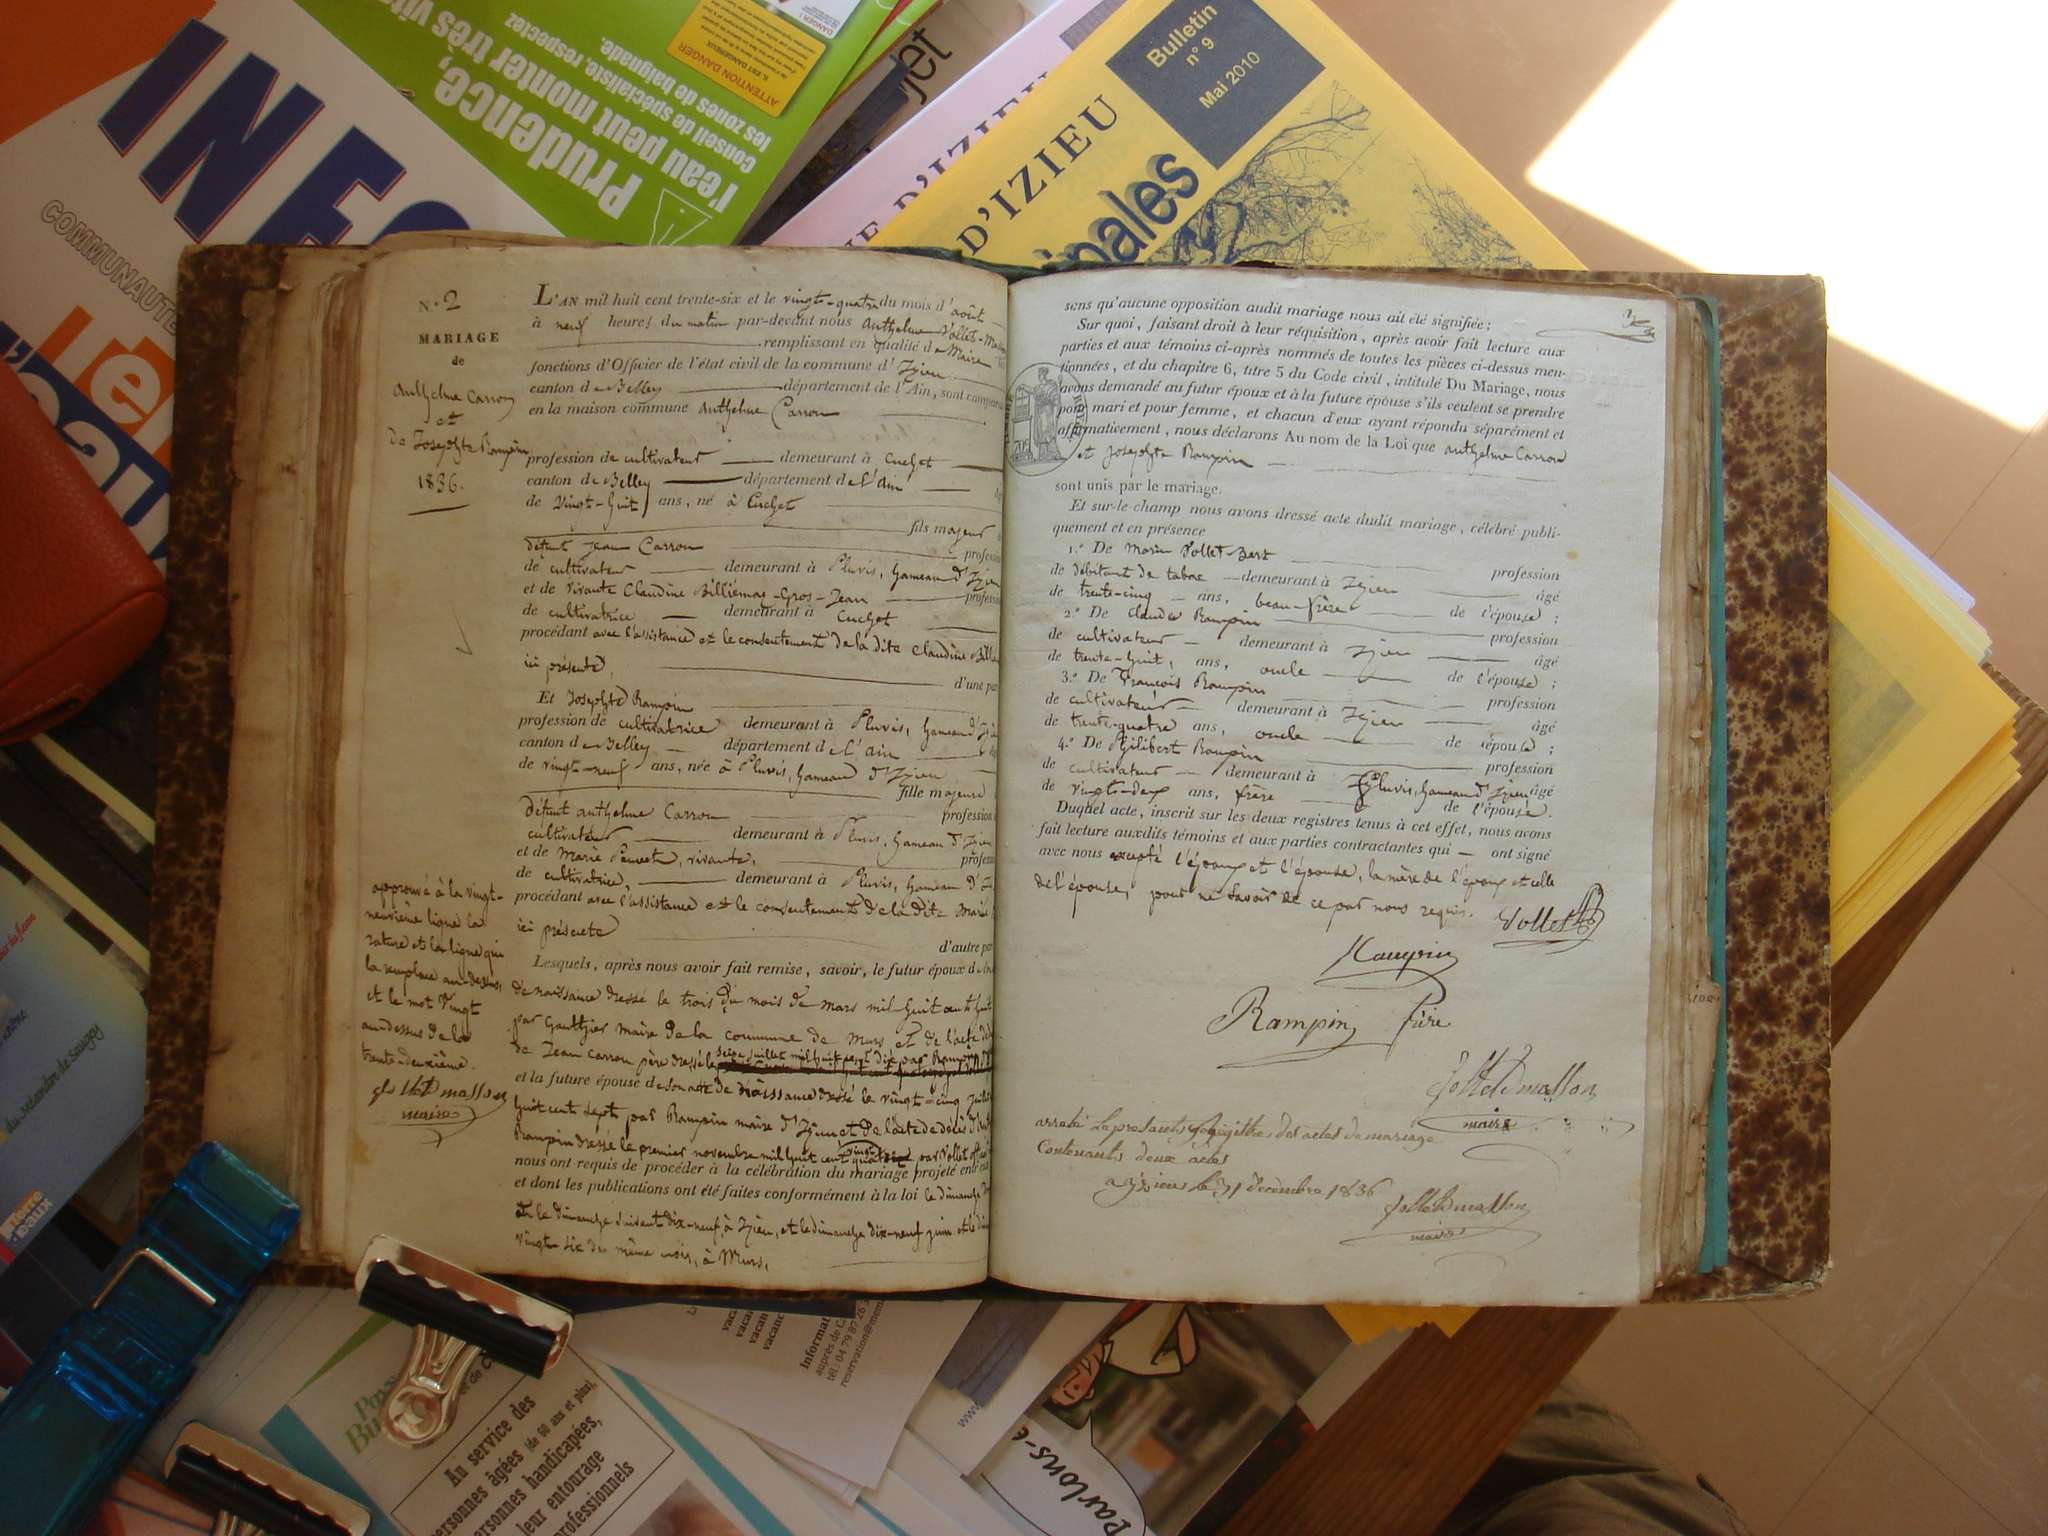 INFO
COMMUNAUTÉ
Prudence,
l'eau peut monter très vite
Conseil de spécialiste, respectez
les zones de baignade.
ATTENTION DANGER
Bulletin
n° 9
Mai 2010
D'IZIEU
D'IZIEU
ipales
N.° 2
MARIAGE
de
Anthelme Carron
et
de Josephte Rampin
1836.
L'AN mil huit cent trente-six et le vingt-quatre du mois d'août
à neuf heures du matin par-devant nous Anthelme Vollet-Masson
remplissant en qualité de Maire
fonctions d'Officier de l'état civil de la commune d'Izieu
canton de Belley département de l'Ain, sont comparu
en la maison commune Anthelme Carron
profession de cultivateur demeurant à Cuchet
canton de Belley département de l'Ain
de vingt-huit ans, né à Cuchet
fils majeur
défunt Jean Carron profession
de cultivateur demeurant à Pluvis, hameau d'Izieu
et de vivante Claudine Billiémaz-Gros-Jean profession
de cultivatrice demeurant à Cuchet
procédant avec l'assistance et le consentement de la dite Claudine
ici présente, d'une par
Et Josephte Rampin
profession de cultivatrice demeurant à Pluvis, hameau d'Izieu
canton de Belley département de l'Ain
de vingt-neuf ans, née à Pluvis, hameau d'Izieu
fille majeure
défunt anthelme Carron profession
cultivateur demeurant à Pluvis, hameau d'Izieu
et de Marie vivante, profession
de cultivatrice, demeurant à Pluvis, hameau d'
procédant avec l'assistance et le consentement de la dite Marie
ici présente d'autre par
Lesquels, après nous avoir fait remise, savoir, le futur époux de
de naissance dressé le trois du mois de mars mil huit cent huit
par Gauthier maire de la commune de Murs et de l'acte de
seize juillet mil huit cent dix par Rampin
de Jean Carron père dressé le
et la future épouse de son acte de naissance dressé le vingt-cinq juillet
huit cent sept par Rampin maire d'Izieu et de l'acte de décès d'
vingt
Rampin dressé le premier novembre mil huit cent quatre par Vollet
nous ont requis de procéder à la célébration du mariage projeté entre
et dont les publications ont été faites conformément à la loi le dimanche
et le dimanche suivant dix-neuf, à Izieu, et le dimanche dix-neuf juin et le
vingt-six du même mois, à Murs.
approuvé à la vingt-
neuvième ligne la
rature et la ligne qui
la remplace au-dessus,
et le mot vingt
au dessus de la
trente-deuxième.
Vollet Masson
maire
sens qu'aucune opposition audit mariage nous ait été signifiée;
Sur quoi, faisant droit à leur réquisition, après avoir fait lecture aux
parties et aux témoins ci-après nommés de toutes les pièces ci-dessus men-
tionnées, et du chapitre 6, titre 5 du Code civil, intitulé Du Mariage, nous
avons demandé au futur époux et à la future épouse s'ils veulent se prendre
pour mari et pour femme, et chacun d'eux ayant répondu séparément et
affirmativement, nous déclarons Au nom de la Loi que anthelme Carron
et Josephte Rampin
sont unis par le mariage.
Et sur-le-champ nous avons dressé acte dudit mariage, célébré publi-
quement et en présence
1.° De Marin Vollet-Bert profession
de débitant de tabac demeurant à Izieu âgé
de trente-cinq ans, beau-frère de l'épouse;
2.° De Claude Rampin profession
de cultivateur demeurant à Izieu âgé
de trente-huit, ans, oncle de l'épouse;
3.° De François Rampin profession
de cultivateur demeurant à Izieu âgé
de trente-quatre ans, oncle de l'épouse;
4.° De Philibert Rampin profession
de cultivateur demeurant à Pluvis, hameau d'Izieu âgé
de vingt-deux ans, frère de l'épouse.
Duquel acte, inscrit sur les deux registres tenus à cet effet, nous avons
fait lecture auxdits témoins et aux parties contractantes qui ont signé
avec nous excepté l'époux et l'épouse, la mère de l'époux et celle
de l'épouse, pour ne savoir de ce par nous requis. Vollet B
Rampin
Rampin frère
Vollet Masson
maire
arrêté le présent registre des actes de mariage
contenants deux actes
a izieu le 31 decembre 1836
Vollet Masson
maire
du Méandre du Saugey
Informat
auprès de Ca
tél : 04 79 87 26 3
Au service des
personnes âgées (de 60 ans et plus),
personnes handicapées,
leur entourage
professionnels
Parlons-e